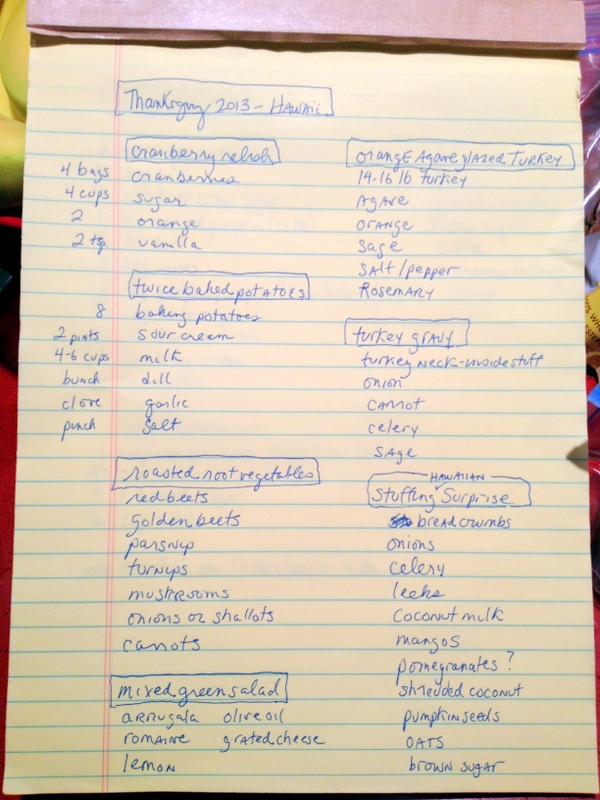 Thanksgving 2013 - HAWAII
cranberry relish
4 bags cranberries
4 cups sugar
2 orange
2 tsp. vanilla
twice baked potatoes
8 baking potatoes
2 pints sour cream
4-6 cups milk
bunch dill
clove garlic
pinch salt
roasted root vegetables
red beets
golden beets
parsnip
turnips
mushrooms
onions or shallots
carrots
mixed green salad
arrugala olive oil
romaine grated cheese
lemon
orange Agave glazed Turkey
14-16 lb turkey
Agave
orange
Sage
SAlt/pepper
Rosemary
turkey gravy
turkey neck-inside stuff
onion
carrot
celery
SAge
HAWAIIAN
Stuffing Surprise
breadcrumbs
onions
celery
leeks
coconut milk
mangos
pomegranates ?
shredded coconut
pumpkin seeds
OATS
brown sugar